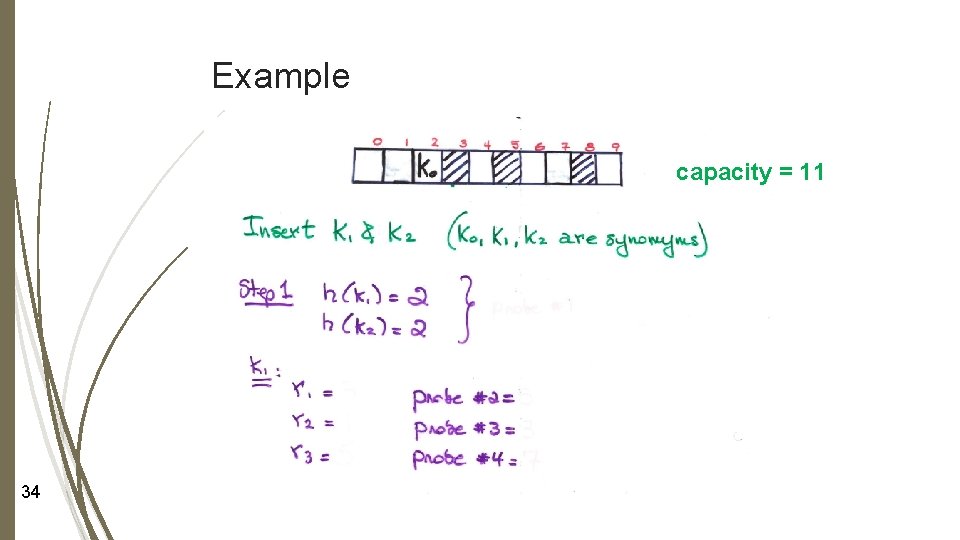 Example
0 1 2 3 4 5 6 7 8 9
K0
capacity = 11
Insert K1 & K2 (K0, K1, K2 are synonyms)
Step 1 h(K1) = 2
h(K2) = 2
Probe #1
K1:
r1 = probe #2 =
r2 = probe #3 =
r3 = probe #4 =
34